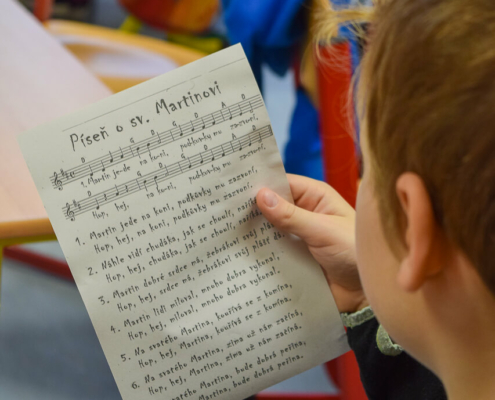 Píseň o sv. Martinovi
D G D G D A D
1. Martin jede na koni, podkůvky mu zazvoní,
D G D G D A D
Hop, hej, na koni, podkůvky mu zazvoní.
1. Martin jede na koni, podkůvky mu zazvoní,
Hop, hej, na koni, podkůvky mu zazvoní.
2. Náhle vidí chuďáka, jak se choulí,
Hop, hej, chuďáka, jak se choulí,
3. Martin dobré srdce má, žebrákovi svůj
Hop, hej, srdce má, žebrákovi svůj plášť
4. Martin lidi miloval, mnoho dobra vykonal,
Hop, hej, miloval, mnoho dobra vykonal.
5. Na svatého Martina, kouřívá se z komína,
Hop, hej, Martina, kouřívá se z komína.
6. Na svatého Martina, zima už nám začíná,
Hop, hej, Martina, zima už nám začíná.
svatého Martina, bude dobrá peřina,
Martina, bude dobrá peřina.